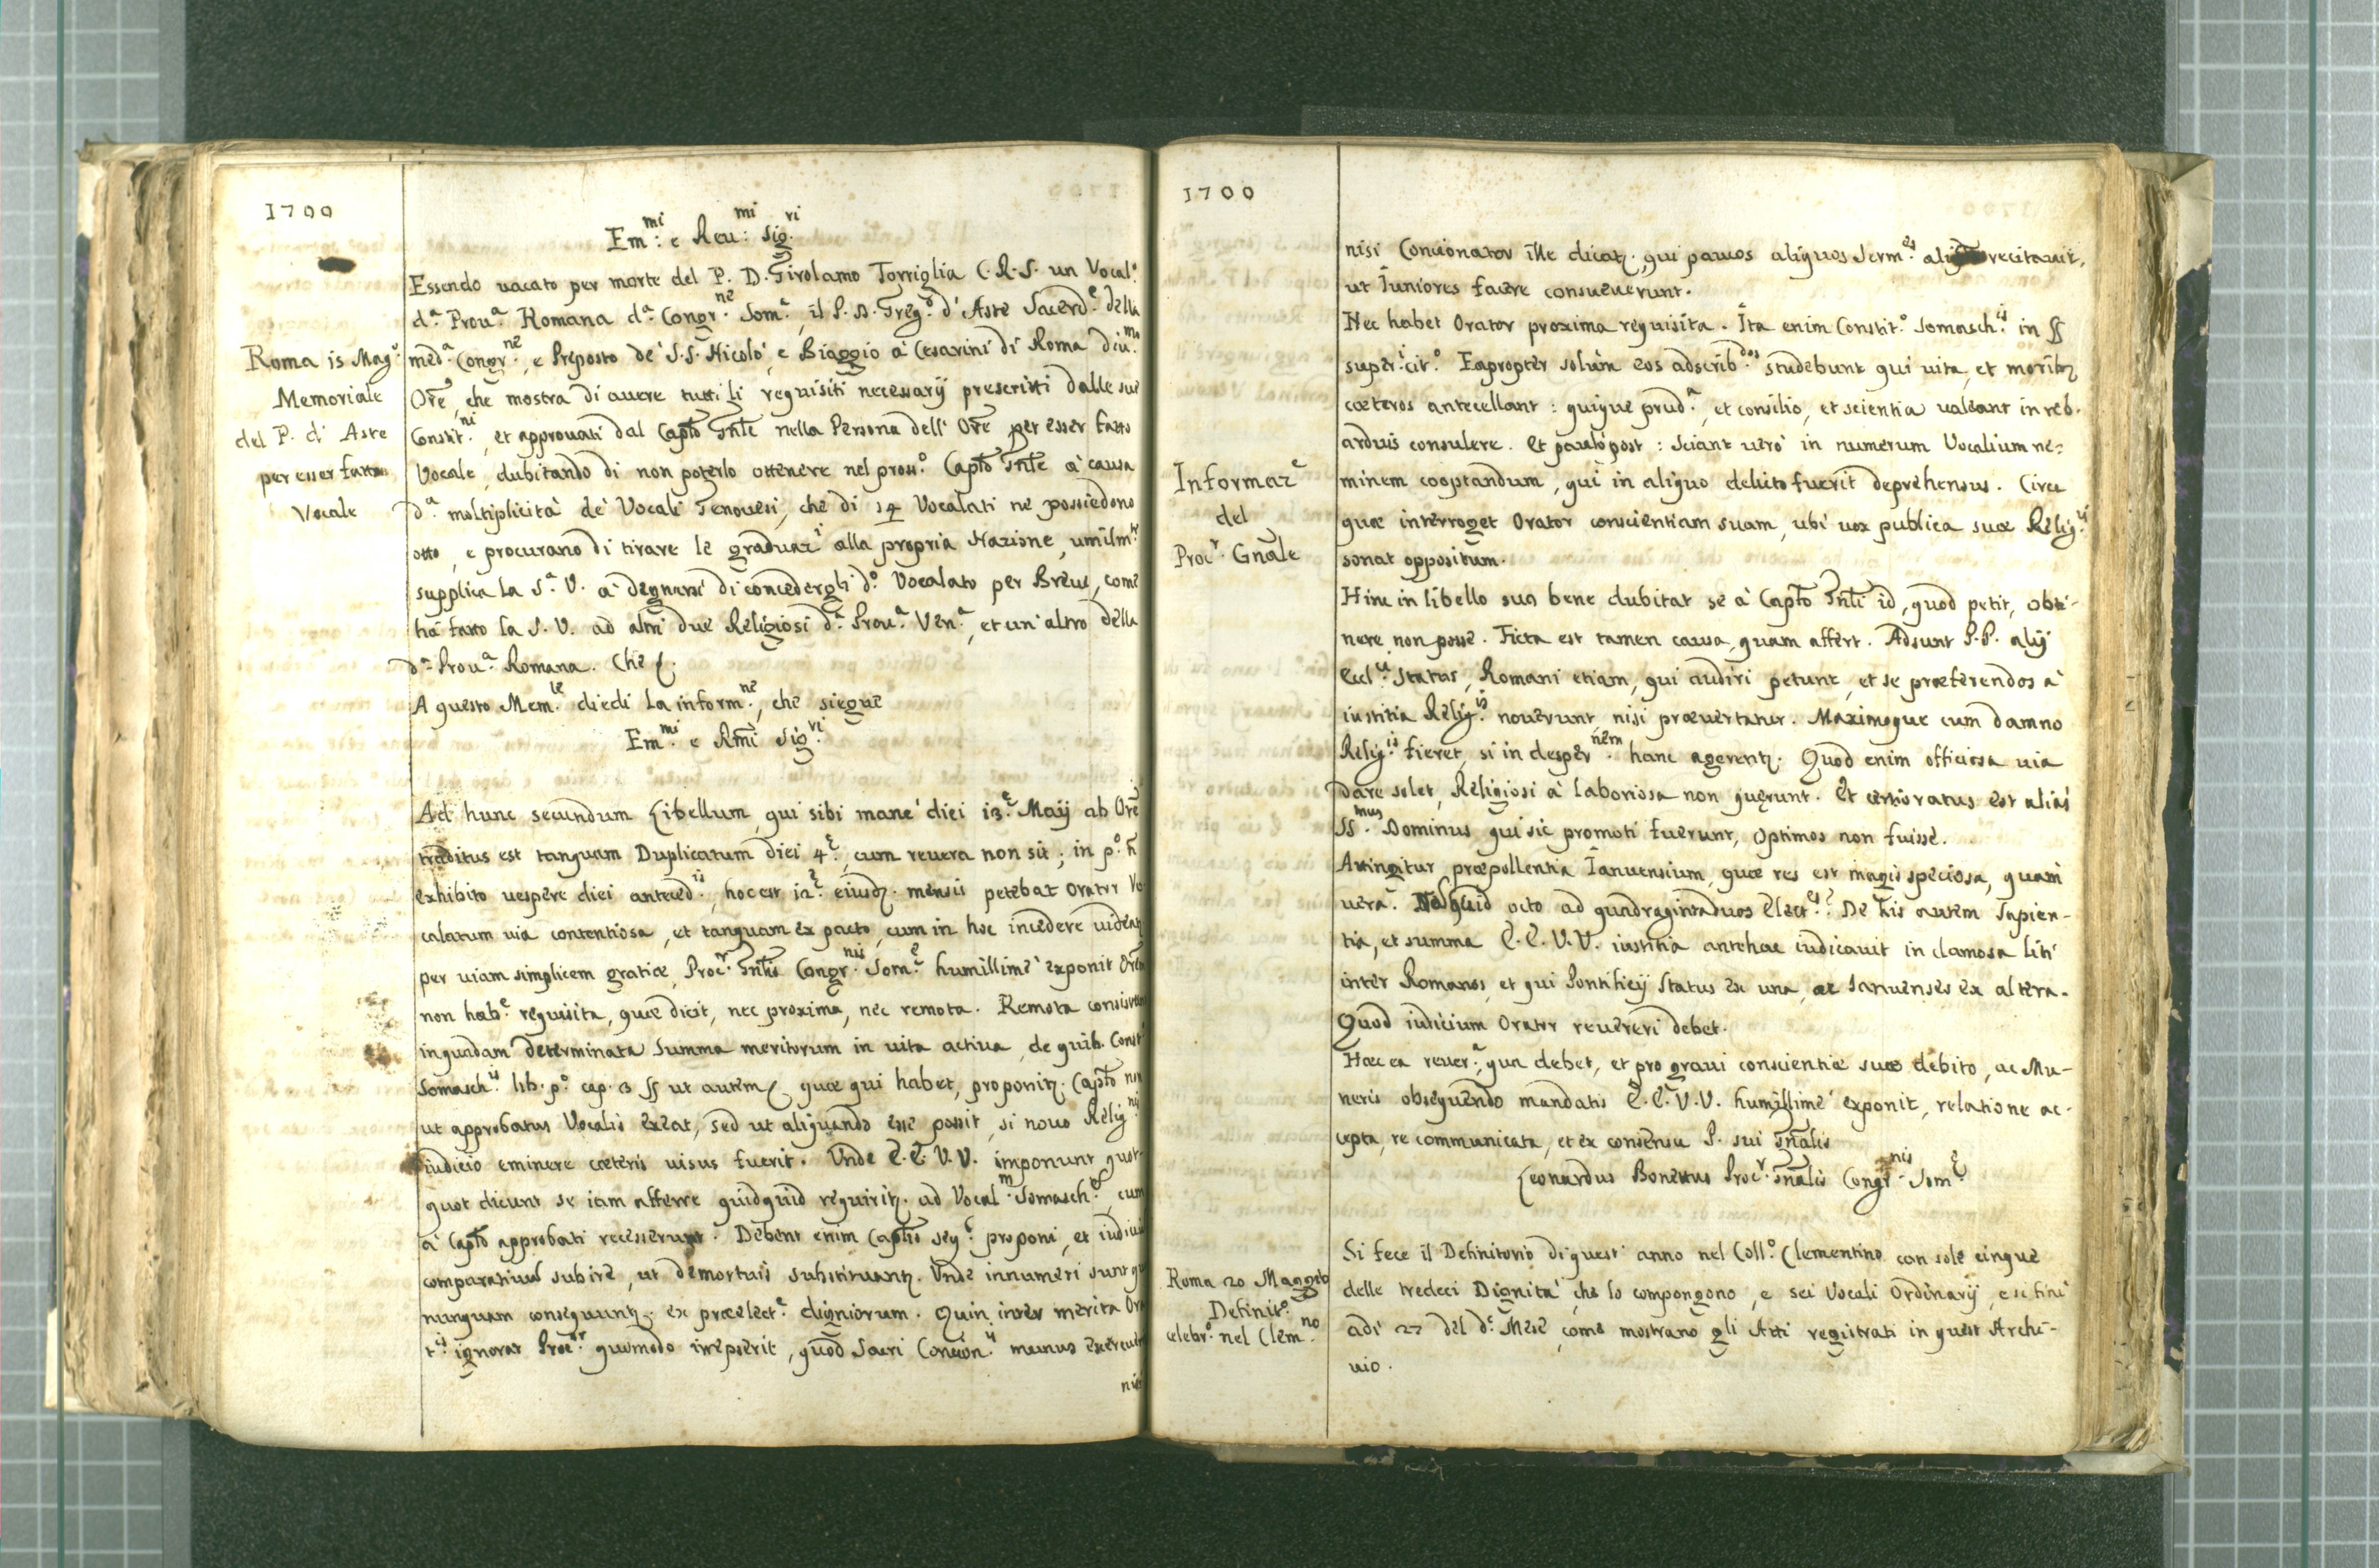 1700
Em:mi e Reu:mi Sig.vi
Essendo uacato per morte del P. D. Girolamo Torriglia C.R.S. un Vocal.º
d.ª Prou.ª Romana d.ª Congr.ne Som.ª, il P. D. Greg.º d'Aste Sacerd.e della
med.ª Congr.ne, e Preposto de' S.S. Nicolò, e Biaggio à Cesarini di Roma diu.mo
Ore, che mostra di auere tutti li requisiti necessarij prescritti dalle sue
Constit.ni, et approuati dal Capto Gnle nella Persona dell' Ore per esser fatto
Vocale, dubitando di non poterlo ottenere nel pross.º Capto Gnle à causa
d.ª moltiplicità de Vocali Genouesi, che di 14 Vocalati ne possiedono
otto, e procurano di tirare le graduaz.i alla propria Nazione, umilm.te
supplica la S.ª V. à degnarsi di concedergli d.º Vocalato per Breue, come
hà fatto la S. V. ad altri due Religiosi d.ª Prou.ª Ven.ª, et un' altro della
d.ª Prou.ª Romana. Che
A questo Mem.le diedi la inform.ne, che siegue
Em.mi e Rmi Sig.vi
Roma 15 Mag.º
Memoriale
del P. d' Aste
per esser fatto
Vocale
Ad hunc secundum Libellum, qui sibi mane diei 13.e Maij ab Ore
traditus est tanquam Duplicatum diei 4.e, cum reuera non sit; in p.º
exhibito uespere diei anteced.is, hoc est 12.e eiusd. mensis petebat Orator Vo
calatum uia contentiosa, et tanquam ex pacto, cum in hoc incedere uideat
per uiam simplicem gratiæ, Proc.r Gnlis Congr.nis Som.e humillimè exponit Orem
non hab.e requisita, quæ dicit, nec proxima, nec remota. Remota consistunt
in quadam determinata summa meritorum in uita actiua, de quib. Const
Somasch.is lib. p.º cap. 3 § ut autem quæ qui habet, proponit. Capto non
ut approbatus Vocalis exeat, sed ut aliquando esse possit, si nouo Relig.nis
iudicio eminere cæteris uisus fuerit. Vnde E.E. V.V. imponunt quot-
quot dicunt se iam afferre quidquid requirit. ad Vocal.m Somasch.e, cum
à Capto approbati recesserunt. Debent enim Captis seq. proponi, et iudiciu
comparatiuu subire, ut demortuis substituant. Vnde innumeri sunt qui
nunquam consequunt. ex præelect.e digniorum. Quin inter merita Ora
t.is ignorat Proc.r quomodo irrepserit, quod Sacri Concion.is munus exercuit
nisi
1700
nisi Concionator ille dicat. qui paucos aliquos Serm.es recitauit,
ut Iuniores facere consueuerunt.
Nec habet Orator proxima requisita. Ita enim Constit.º Somasch.is in §
super.i cit.º Eapropter solùm eos adscrib.dos studebunt qui uita, et morib
cæteros antecellant: quique prud.ª, et consilio, et scientia ualeant in reb.
arduis consulere. Et paulòpost: Sciant uerò in numerum Vocalium ne-
minem cooptandum, qui in aliquo delicto fuerit deprehensus. Circa
quæ interroget Orator conscientiam suam, ubi uox publica suæ Relig.is
sonat oppositum.
Informaz.e
del
Proc.r Gnale
Hinc in libello suo bene dubitat se à Capto Gnli id, quod petit, obti-
nere non posse. Ficta est tamen causa, quam affert. Adsunt P.P. alij
Eccl.ci Status, Romani etiam, qui audiri petunt, et se præferendos à
iustitia Relig.is nouerunt nisi præuertatur. Maximoque cum damno
Relig.is fieret, si in desper.nem hanc agerent. Quod enim officiosa uia
dare solet, Religiosi à laboriosa non quęrunt. Et certioratus est aliàs
SS.mus Dominus qui sic promoti fuerunt, optimos non fuisse.
Attingitur præpollentia Ianuensium, quæ res est magis speciosa, quàm
uera. quid octo ad quadragintaduos Elect.es? De his autem sapien-
tia, et summa E.E. V.V. iustitia antehac iudicauit in clamosa liti
inter Romanos, et qui Pontificij Status ex una, ac Ianuenses ex altera.
Quod iudicium Orator reuereri debet.
Hæc ea reuer.ª, qua debet, et pro graui conscientiæ suæ debito, ac Mu-
neris obsequendo mandatis E.E. V.V. humillimè exponit, relatione ac-
cepta, re communicata, et ex consensu P. sui Gnalis
Leonardus Bonettus Proc.r Gnalis Congr.nis Som.e
Roma 20 Maggio
Definit.º
celebr.º nel Clem.no
Si fece il Definitorio di quest' anno nel Coll.º Clementino con sole cinque
delle tredeci Dignità, che lo compongono, e sei Vocali Ordinarij, e si finì
adì 27 del d.º Mese, come mostrano gli Atti registrati in quest Archi-
uio.